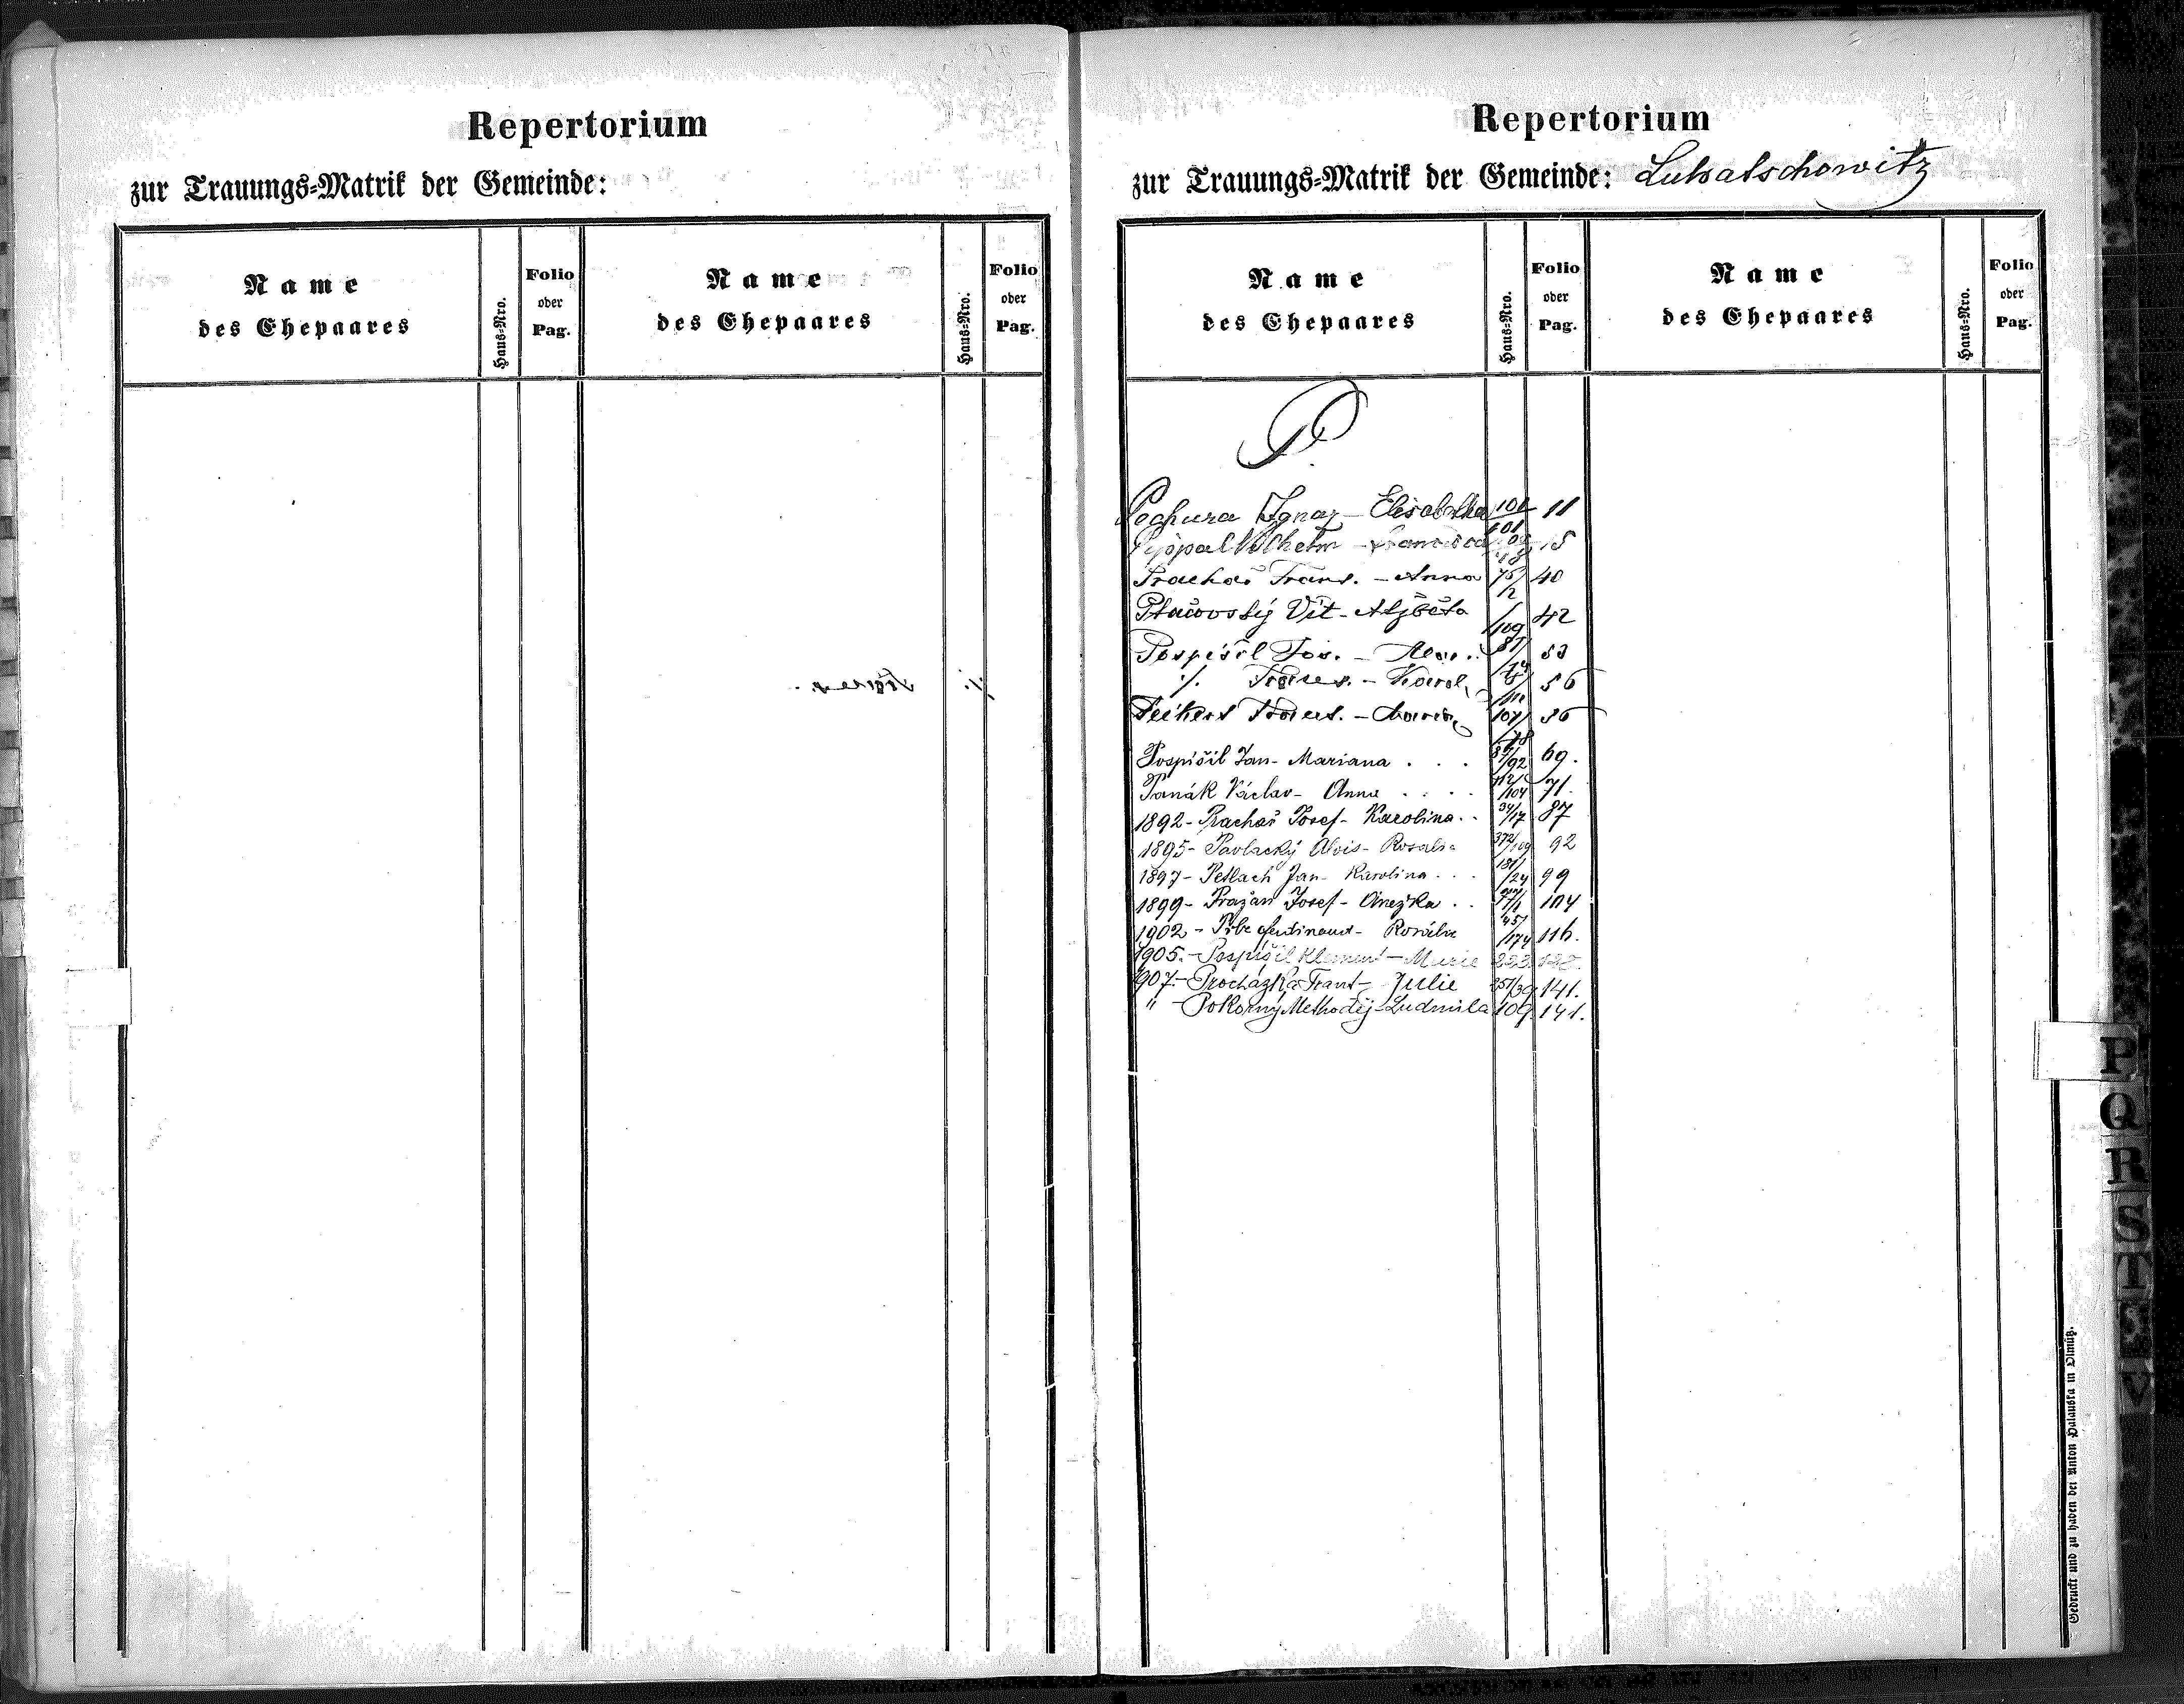 Repertorium
zur Trauungs=Matrik der Gemeinde:
Name des Ehepaares Haus=Nro. Folio oder Pag. Name des Ehepaares Haus=Nro. Folio oder Pag.
Repertorium
zur Trauungs=Matrik der Gemeinde: Luhatschowitz
Name des Ehepaares Haus=Nro. Folio oder Pag. Name des Ehepaares Haus=Nro. Folio oder Pag.
P.
Pechura Ignaz - Elisabetha 11
Wilhelm - 15
Prachař Franz. - Anna 40
Ptačovský Vít - Alžběta /109 42
Pospíšil Jos. - 53
./. - Karol. 56
Peikert - 56
Pospíšil Jan - Mariana . . . /92 69.
Panák Václav - Anna . . . . /104 71.
1892 - Prachař Josef - Karolina . . 34/17 87
1895 - Pavlacký Alois - Rosalie 372/109 92
1897 - Petlach Jan - Karolina . . . 131/24 99
1899 - Pražan Josef - Anežka . . 104
1902 - Ferdinand - Rosálie /174 116.
1905. - Pospíšil Klement - Marie
1907. - Procházka Frant - Julie 251/39 141.
" - Pokorný Methoděj - Ludmila 109. 141.
P
Q
R
S
T
V
Gedruckt und zu haben bei Anton Halauska in Olmütz.